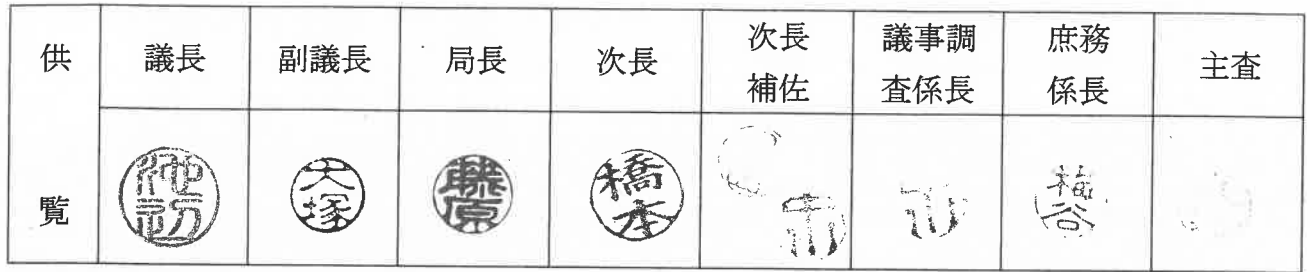 供覧
議長
副議長
局長
次長
次長
補佐
議事調
査係長
庶務
係長
主査
池初
大塚
藤原
橋本
梅谷